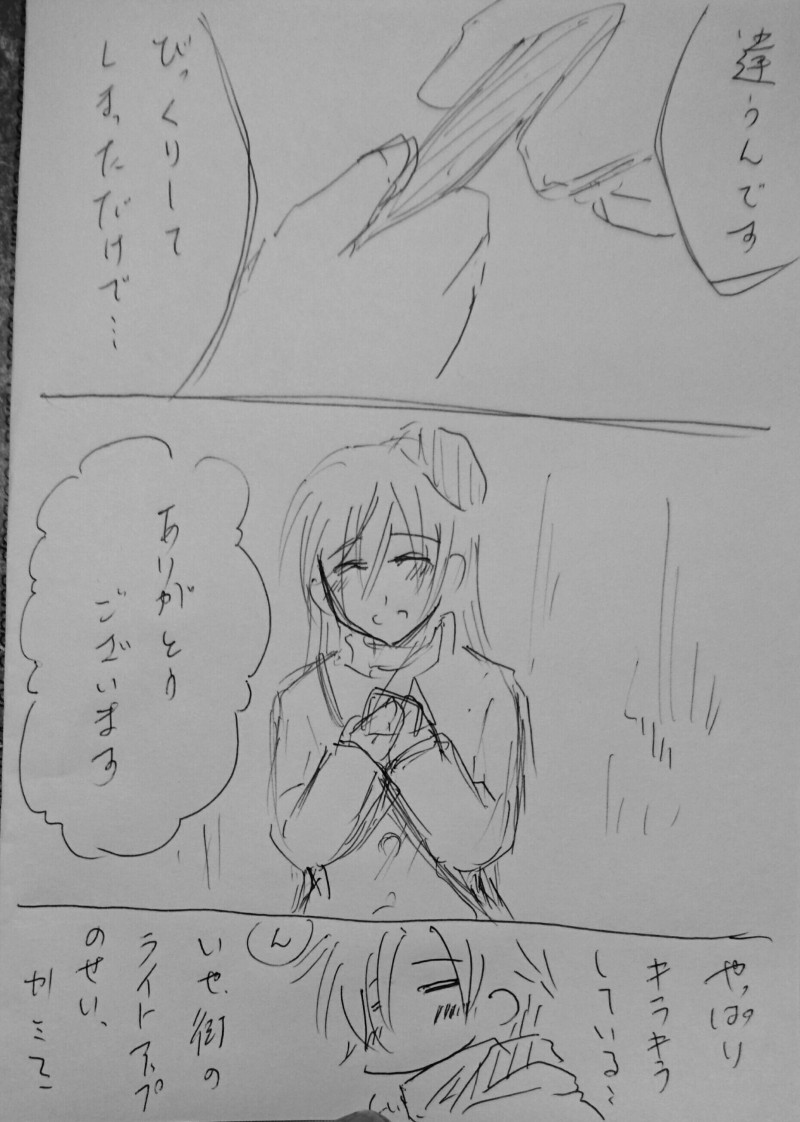 違うんです
びっくりして
しまっただけで…
ありがとう
ございます
やっぱり
キラキラ
している…
ん
いや、街の
ライトアップ
のせい、
かこて